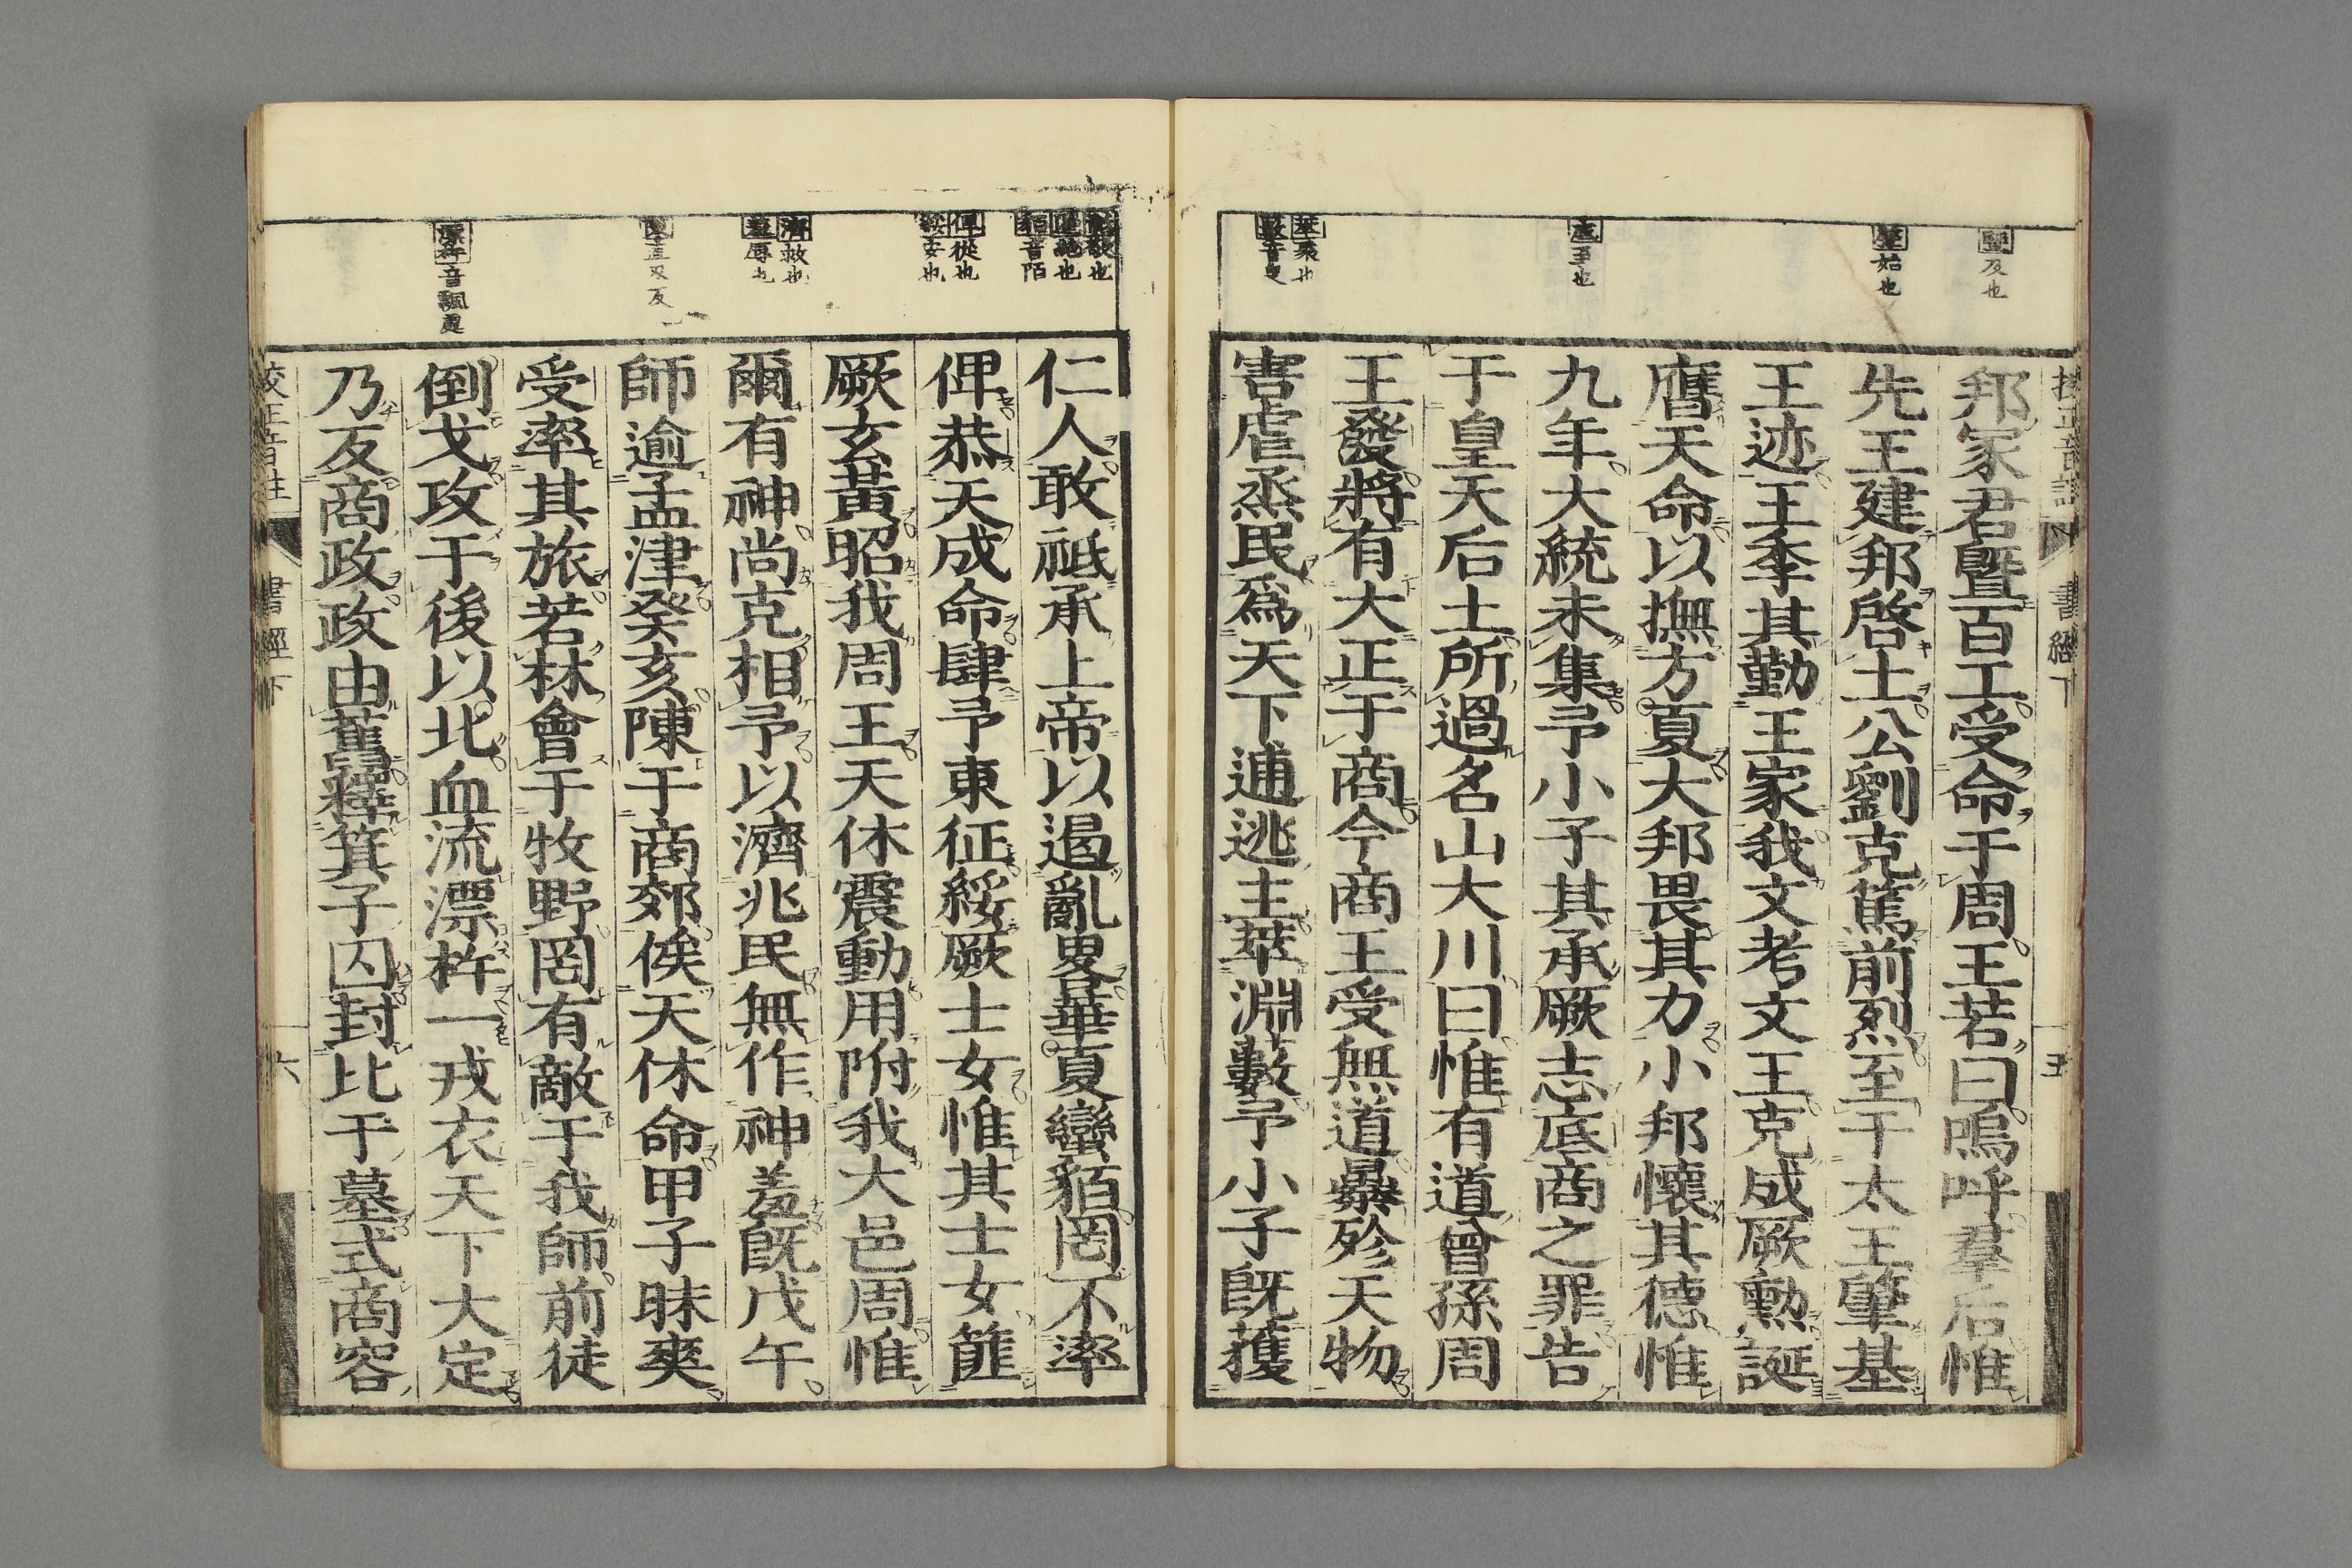 曁及也
肇始也
底至也
萃聚也
邦冢君曁百工受命于周王若曰嗚呼羣后惟
先王建邦啓土公劉克篤前烈至于太王肇基
王迹王季其勤王家我文考文王克成厥勲誕
膺天命以撫方夏大邦畏其力小邦懷其德惟
九年大統未集予小子其承厥志底商之罪告
于皇天后土所過名山大川曰惟有道曾孫周
王發將有大正于商今商王受無道暴殄天物
害虐烝民爲天下逋逃主萃淵藪予小子既獲
書經下
五
貊音陌
俾從也
綏安也
濟救也
羞辱也
仁人敢祗承上帝以遏亂畧華夏蠻貊罔不率
俾恭天成命肆予東征綏厥士女惟其士女篚
厥玄黃昭我周王天休震動用附我大邑周惟
爾有神尚克相予以濟兆民無作神羞既戊午
師逾孟津癸亥陳于商郊俟天休命甲子昧爽
受率其旅若林會于牧野罔有敵于我師前徒
倒戈攻于後以北血流漂杵一戎衣天下大定
乃反商政政由舊釋箕子囚封比干墓式商容
校正音註
書經下
六